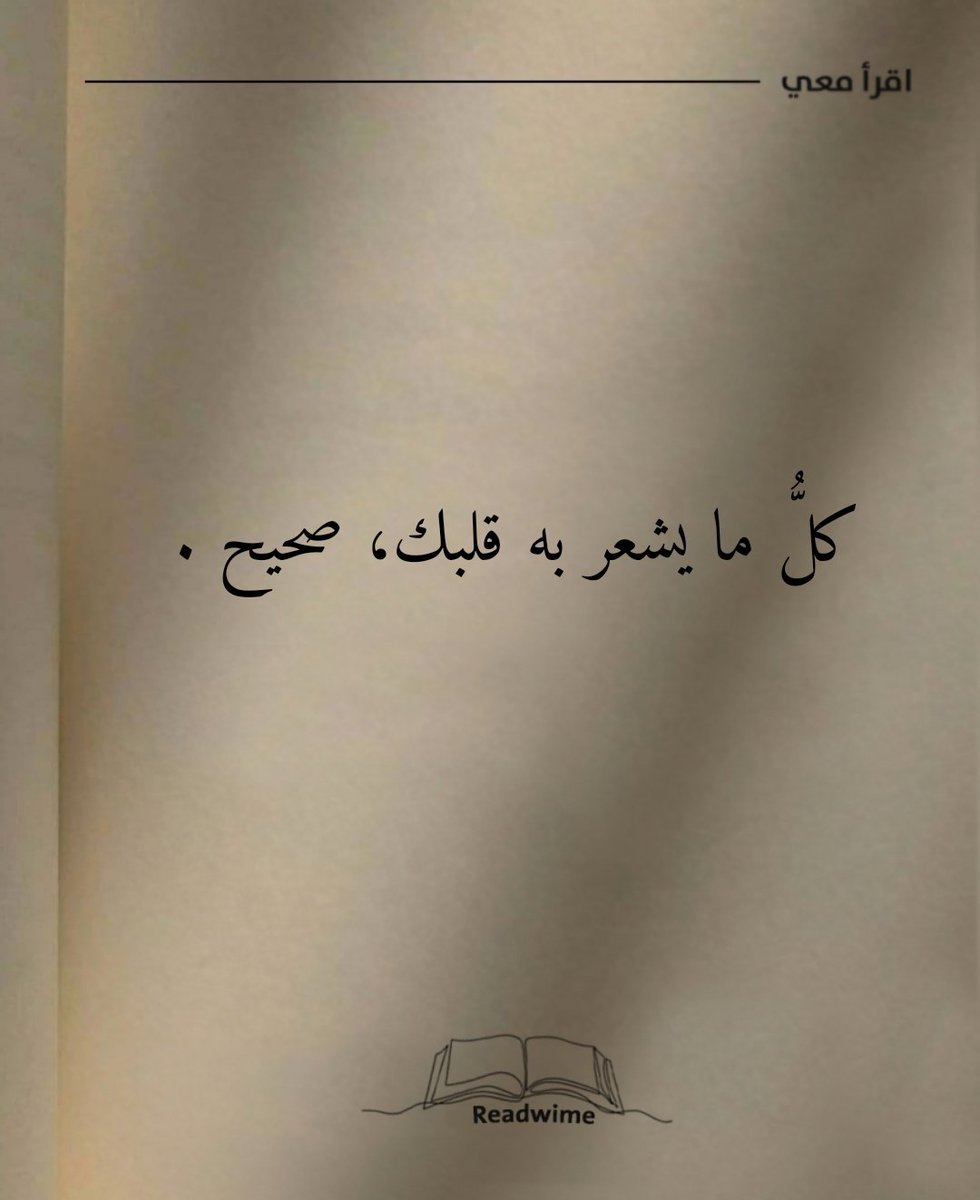 اقرأ معي
كلُّ ما يشعر به قلبك، صحيح .
Readwime